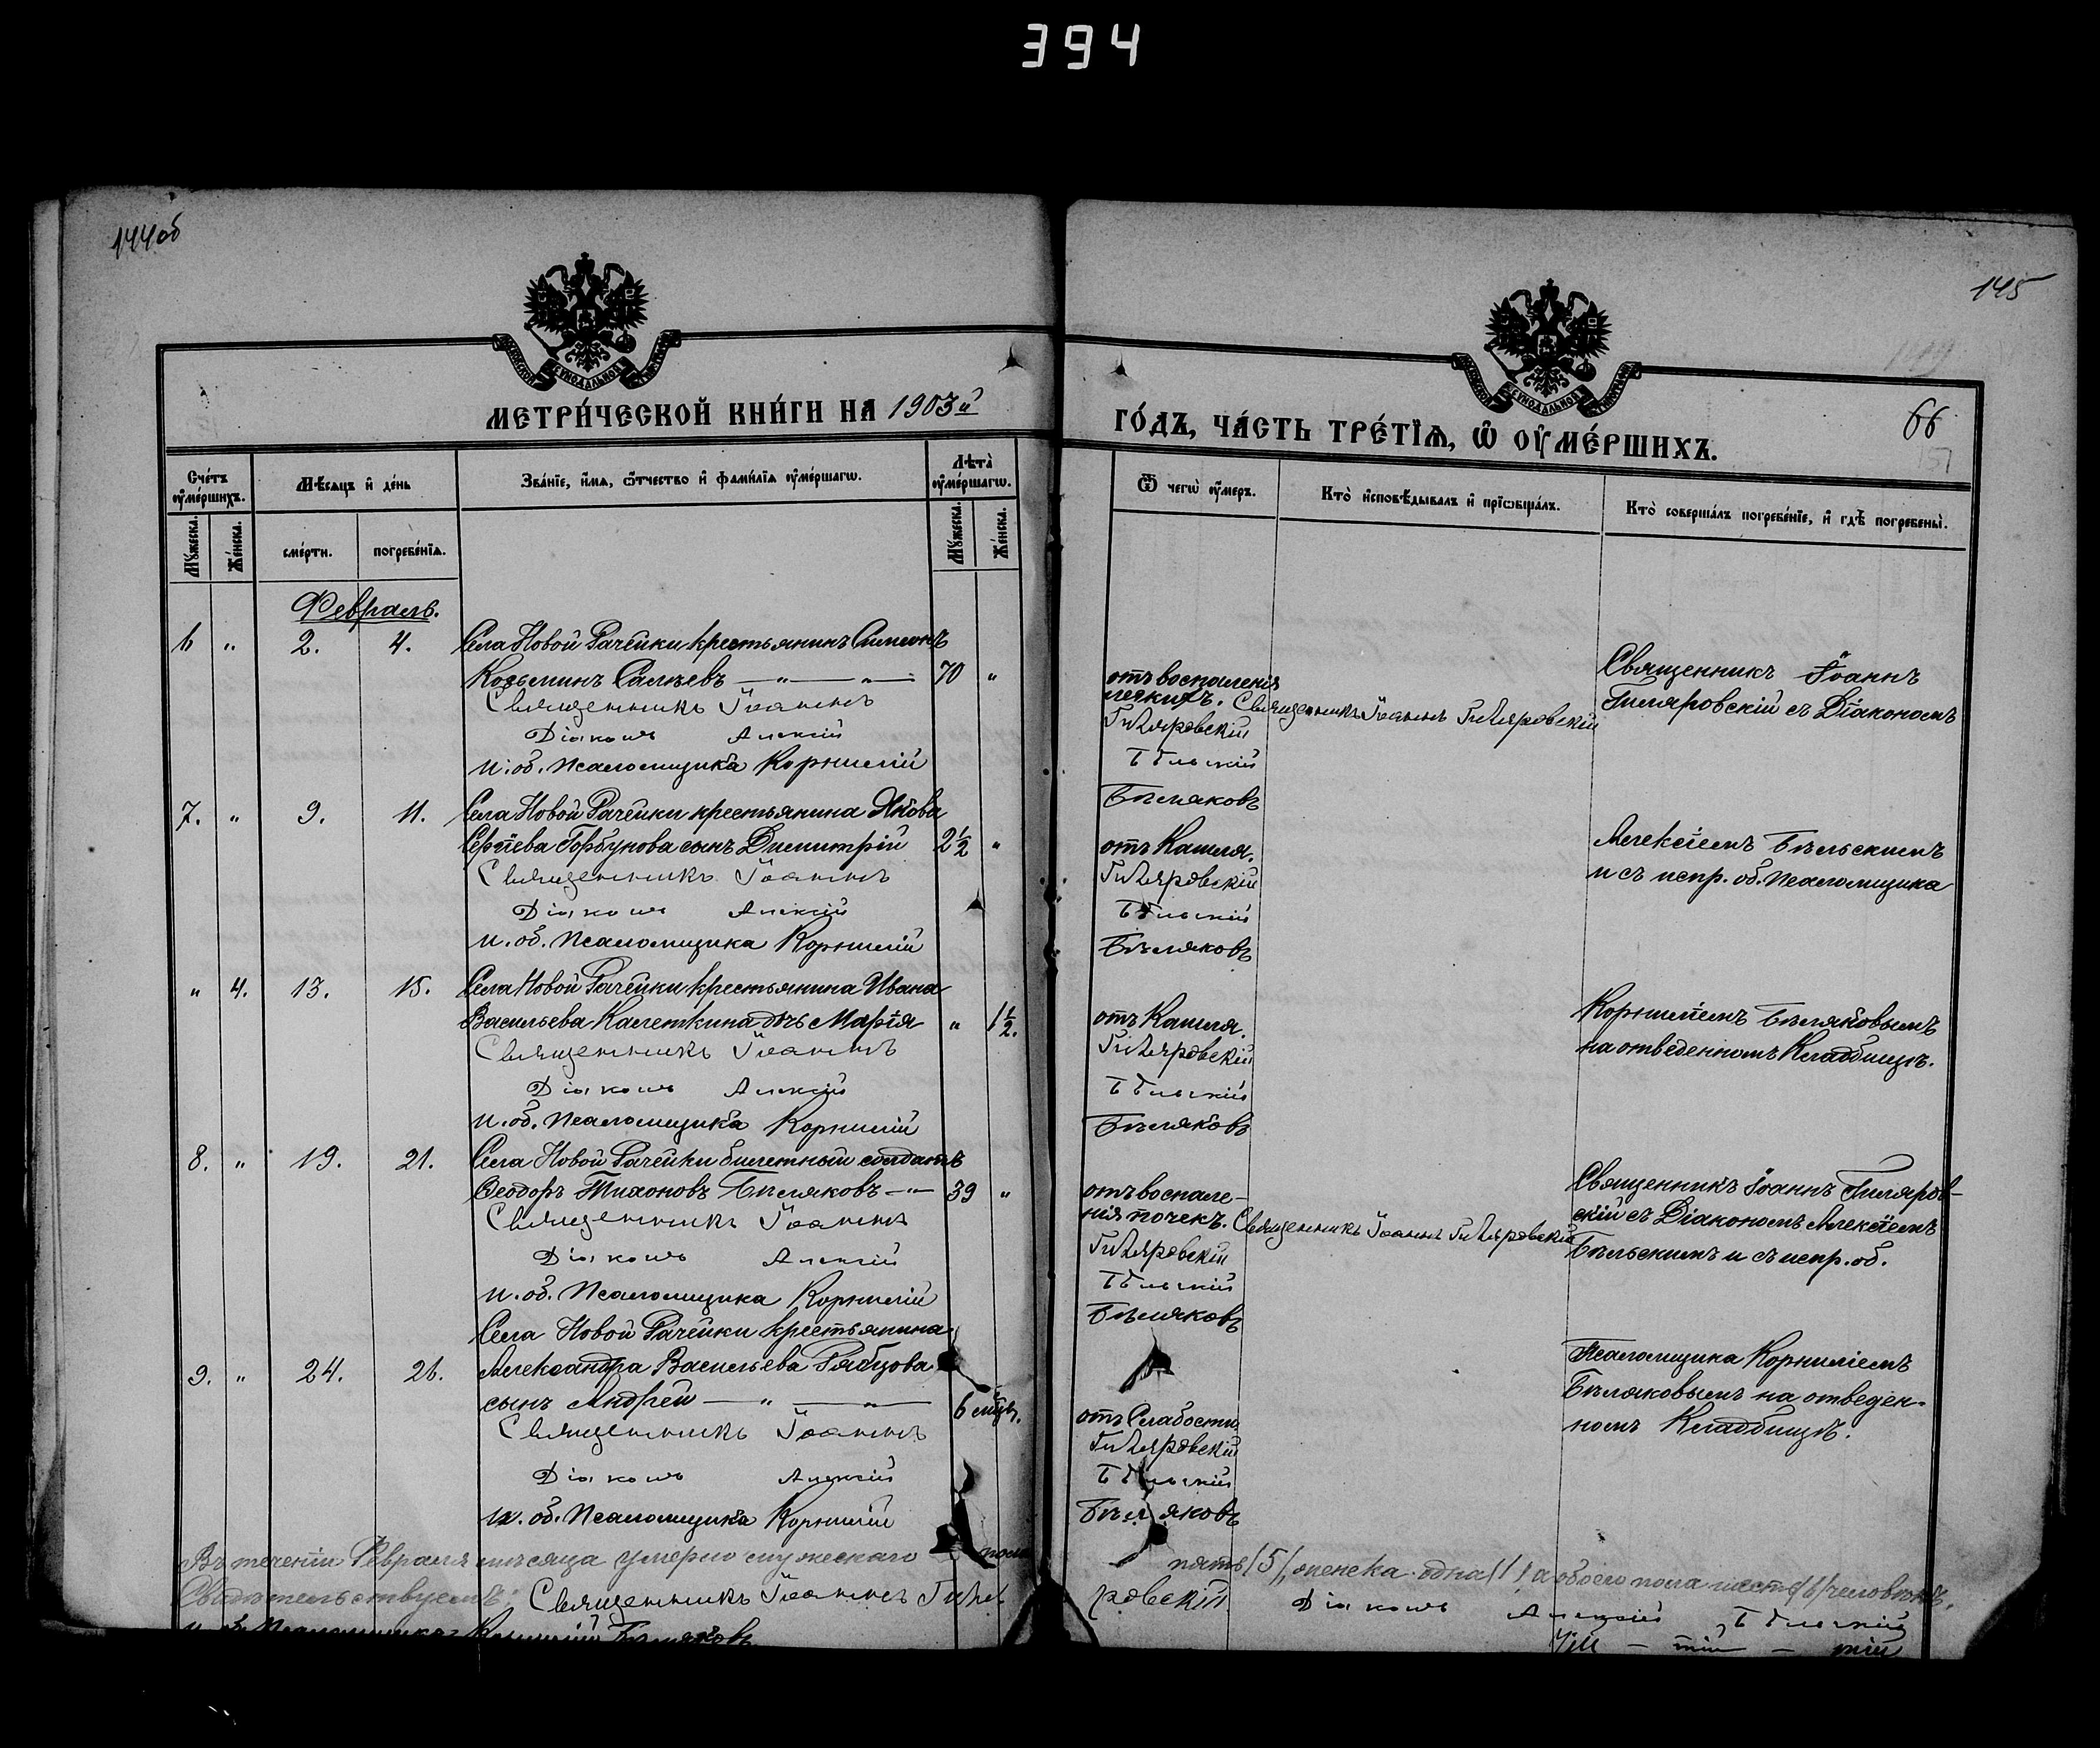 394
144об
145
МЕТРИ́ЧЕСКОЙ КНИ́ГИ НА 1903й
ГО́ДЪ, ЧА́СТЬ ТРЕ́ТІѦ, Ѡ҆ ОУ҆МЕ́РШИХЪ.
66
Сче́тъ оу҆ме́ршихъ.
Мѣ́сяцъ и҆ де́нь
Зва́нїе, и҆́мѧ, ѻ҆́тчество и҆ фами́лїѧ оу҆ме́ршагѡ.
Лѣ́та оу҆ме́ршагѡ.
Ѿ чегѡ̀ оу҆́меръ.
Кто̀ и҆сповѣ́дывалъ и҆ прїѡбща́лъ.
Кто̀ соверша́лъ погребе́нїе, и҆ гдѣ̀ погребены̀.
Мꙋ́жеска.
Же́нска.
сме́рти.
погребе́нїѧ.
Мꙋ́жеска.
Же́нска.
Февраль.
6 " 2. 4. Села Новой Рачейки крестьянинъ Симеонъ
Козьминъ Салѣевъ — " — " — 70 "
отъ воспаленія
легкихъ. Священникъ Іоаннъ Гиляровскій
Священникъ Іоаннъ
Гиляровскій съ Діакономъ
Священникъ Іоаннъ Гиляровскій
Діаконъ Алексій Бѣльскій
и. об. Псаломщика Корнилій Бѣляковъ
7. " 9. 11. Села Новой Рачейки крестьянина Якова
Сергіева Горбунова сынъ Димитрій 2½ " отъ Кашля.
Алексіемъ Бѣльскимъ
и съ испр. об. Псаломщика
Священникъ Іоаннъ Гиляровскій
Діаконъ Алексій Бѣльскій
и. об. Псаломщика Корнилій Бѣляковъ
" 4. 13. 15. Села Новой Рачейки крестьянина Ивана
Васильева Калеткина дочь Марія " 1½. отъ Кашля.
Корниліемъ Бѣляковымъ
на отведенномъ Кладбищѣ.
Священникъ Іоаннъ Гиляровскій
Діаконъ Алексій Бѣльскій
и. об. Псаломщика Корнилій Бѣляковъ
8. " 19. 21. Села Новой Рачейки билетный солдатъ
Ѳеодоръ Тихоновъ Бѣляковъ — " — 39 "
отъ воспале-
нія почекъ. Священникъ Іоаннъ Гиляровскій
Священникъ Іоаннъ Гиляров-
скій съ Діакономъ Алексіемъ
Бѣльскимъ и съ испр. об.
Священникъ Іоаннъ Гиляровскій
Діаконъ Алексій Бѣльскій
и. об. Псаломщика Корнилій Бѣляковъ
Села Новой Рачейки крестьянина
9. " 24. 26. Александра Васильева Рябцова
сынъ Андрей — " — " — 6 мѣц. отъ Слабости
Псаломщика Корниліемъ
Бѣляковымъ на отведен-
номъ Кладбищѣ.
Священникъ Іоаннъ Гиляровскій
Діаконъ Алексій Бѣльскій
и. об. Псаломщика Корнилій Бѣляковъ
Въ теченіи Февраля мѣсяца умерло мужескаго пола пять /5/, женска одна /1/, а обоего пола шесть /6/ человѣкъ.
Свидѣтельствуемъ: Священникъ Іоаннъ Гиляровскій Діаконъ Алексій Бѣльскій
и. об. Псаломщика Корнилій Бѣляковъ